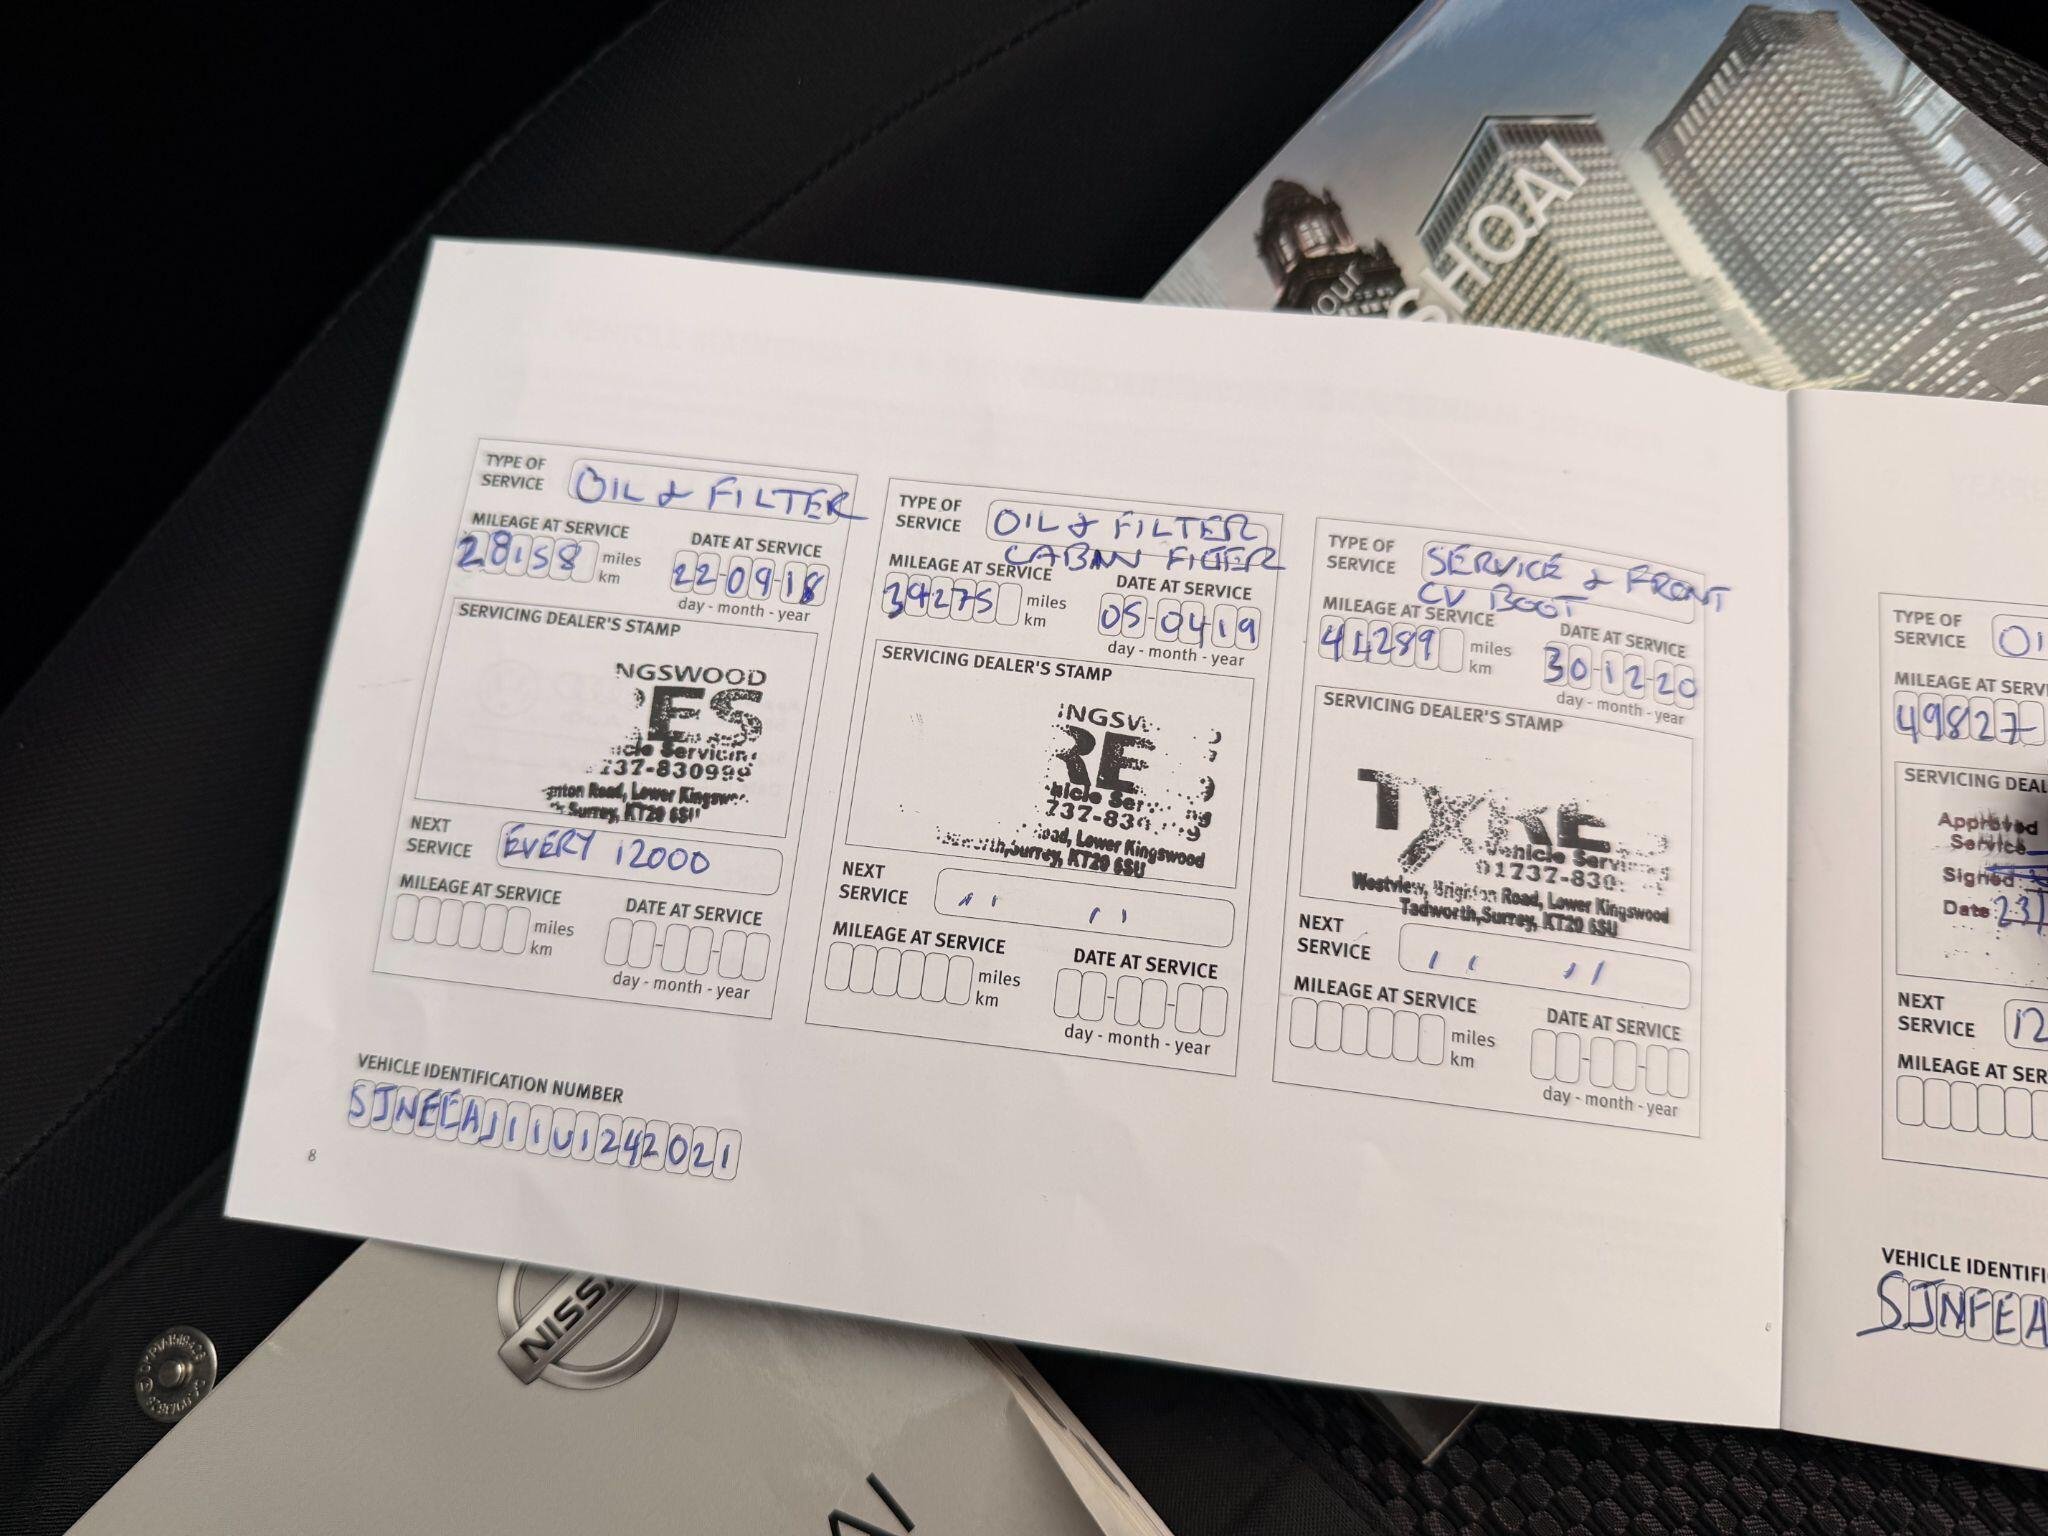 your
SHQAI
TYPE OF SERVICE OIL & FILTER
MILEAGE AT SERVICE
28158 miles km
DATE AT SERVICE
22-09-18
day - month - year
SERVICING DEALER'S STAMP
NGSWOOD
RES
icle Servicing
737-830999
nton Road, Lower Kingswo
Surrey, KT20 6SU
NEXT SERVICE EVERY 12000
MILEAGE AT SERVICE
miles km
DATE AT SERVICE
day - month - year
TYPE OF SERVICE OIL & FILTER
CABIN FILTER
MILEAGE AT SERVICE
39275 miles km
DATE AT SERVICE
05-04-19
day - month - year
SERVICING DEALER'S STAMP
INGSW
RE
hicle Ser
737-830
oad, Lower Kingswood
Tadworth,Surrey, KT20 6SU
NEXT SERVICE '' ''
MILEAGE AT SERVICE
miles km
DATE AT SERVICE
day - month - year
TYPE OF SERVICE SERVICE & FRONT
CV BOOT
MILEAGE AT SERVICE
44289 miles km
DATE AT SERVICE
30-12-20
day - month - year
SERVICING DEALER'S STAMP
TYRE
Vehicle Servi
01737-830
Westview, Brighton Road, Lower Kingswood
Tadworth,Surrey, KT20 6SU
NEXT SERVICE '' ''
MILEAGE AT SERVICE
miles km
DATE AT SERVICE
day - month - year
VEHICLE IDENTIFICATION NUMBER
SJNFEAJ11U1242021
8
TYPE OF SERVICE OI
MILEAGE AT SERVI
49827
SERVICING DEAL
Approved
Service
Signed
Date 23/
NEXT SERVICE 12
MILEAGE AT SER
VEHICLE IDENTIFI
SJNFEA
NISSA
AI